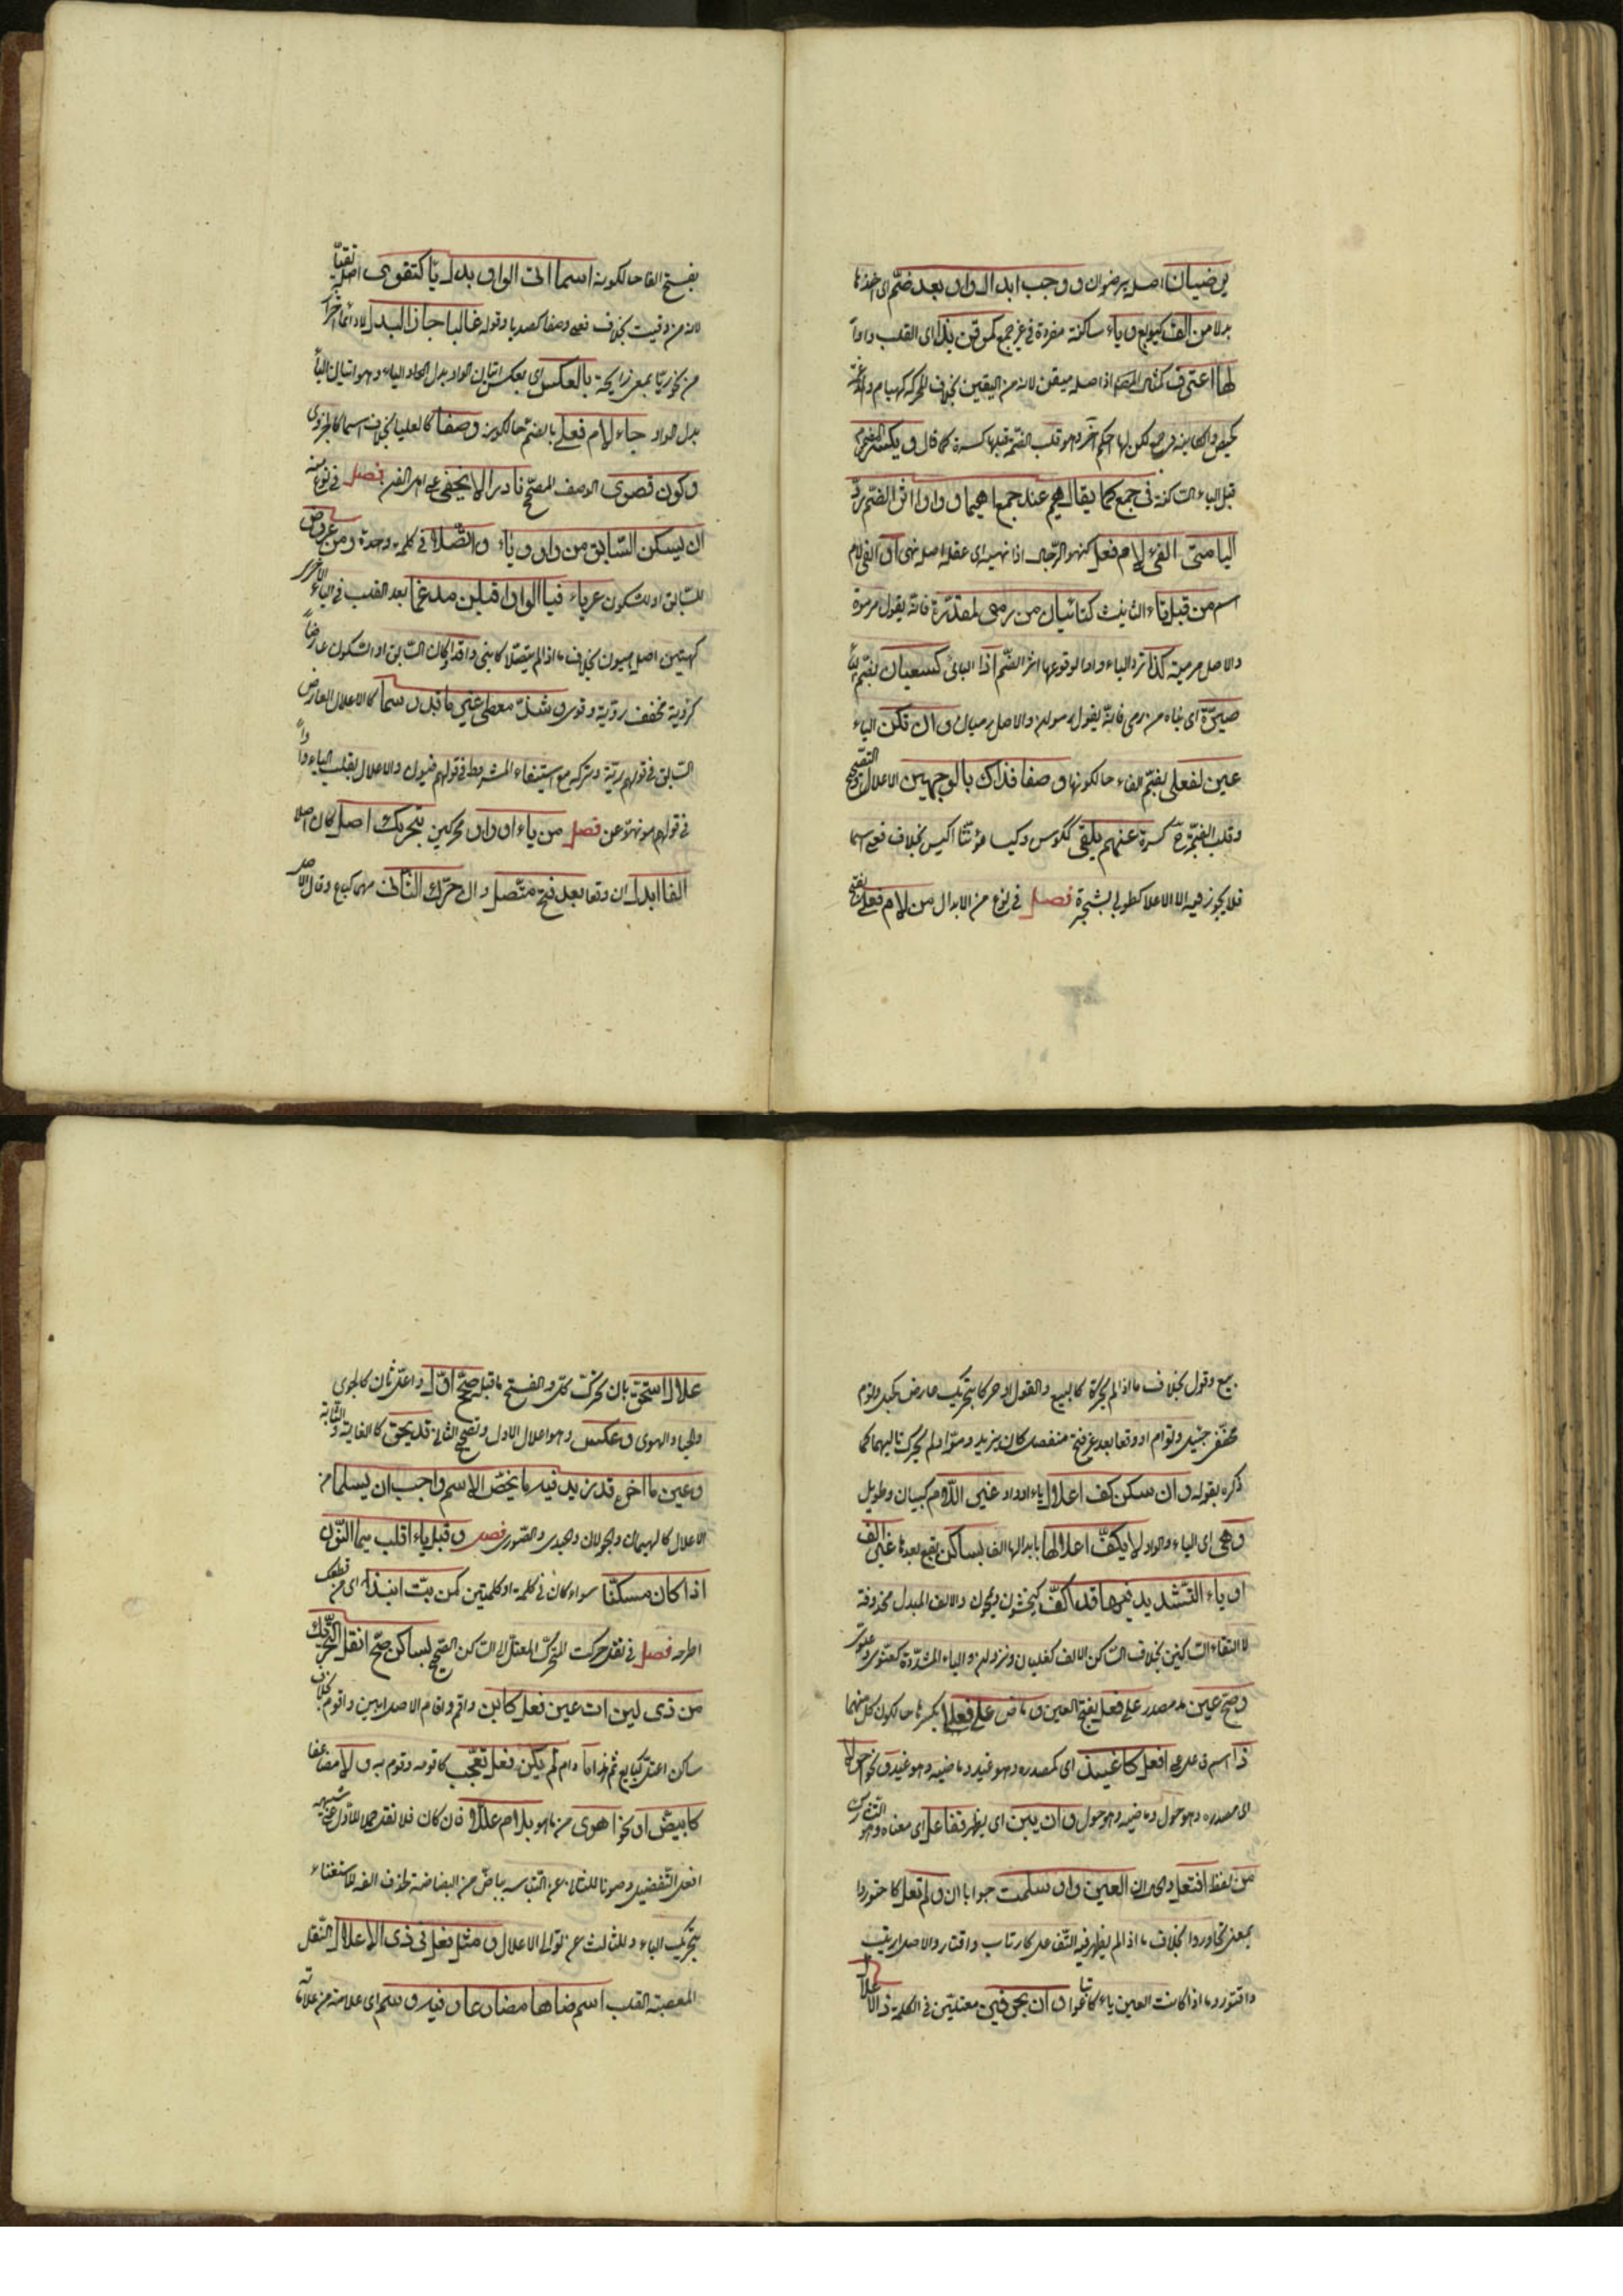 يرضيان اصله يرضوان و وجب ابدال واو بعد ضم اى اخذها
بدلا من الف كبويع و ياء ساكنة مفردة في غير جمع كموقن بذا اى القلب واوا
لها اعترف اذ اصله ميقن لانه من اليقين بخلاف المتحركة كهيام
لكن لها حكم آخر وهو قلب الضمة قبلها كسرة كما قال و يكسر المضموم
قبل الياء الساكنة في جمع كما يقال هيم عند جمع اهيما و واوا اثر الضم رد
اليا متى الفى لام فعل كنهو الرجل اذا نهيه اى عقله اصله نهى او الفى لام
اسم من قبل تاء التانيث كتا بان من رمى كمقدرة فانه يقول مرموة
والاصل مرمية كذا ترد الياء واوا لوقوعها اثر الضم اذا البانى كسبعان بضم الباء
صيره اى بناه من رمى فانه يقول رموان والاصل رميان و ان تكن الياء
عينا لفعلى بضم الفاء حالكونها وصفا فذاك بالوجهين الاعلال و التصحيح
وقلب الضمة كسرة عنهم يلفى ككوسى وكيسى مؤنثا اكيس بخلاف فعلى اسما
فلا يجوز فيه الا الاعلا كطوبى لشجرة فصل في نوع من الابدال من لام فعلى بفتح
بفتح الفا حالكونه اسما اتى الواو بدل يا كتقوى اصله تقيا
لانه من وقيت بخلاف فعلى وصفا كصديا وقوله غالبا جا ذا البدل
من نحو ريا بمعنى رايحة بالعكس اى بعكس اتيان الواو بدل الياء وهو اتيان الياء
بدل الواو جاء لام فعلى بالضم حالكونه وصفا كالعليا بخلاف اسما كالحزوى
وكون قصوى الوصف المصحح نادرا لا يخفى على اهل الفن فصل في نوع منه
ان يسكن السابق من واو و ياء و اتصلا في كلمة واحدة ومن عروض
للسابق او للسكون عريا فيا الواو اقلبن مدغما بعد القلب في الياء الاخرى
كهين اصله هيون بخلاف ما اذا لم يتصلا كابنى واقد او كان السابق او السكون عارضا
كروية مخفف رؤية وقوى و شذ معطى غير ما قد رسما كالاعلال العارض
السابق في قولهم رية وتركه مع استيفاء الشروط في قولهم ضيون والاعلال بقلب الياء واوا
في قولهم هو نهو عن فصل من ياء او واو محركين بتحريك اصل كان اصلا
الفا ابدل ان وقعا بعد فتح متصل وان حرك التالى منهما كباع وقال الاصل
بيع وقول بخلاف ما اذا لم يحركا كالبيع والقول او حركا بتحريك عارض كجيل وتوم
مخففى جيئل وتوام او وقعا بعد غير فتح منفصل كان يزيد ومق او لم يحرك تاليهما كما
ذكره بقوله و ان سكن كف اعلال ياء او واو غير اللام كبيان وطويل
وهى اى الياء والواو لا يكف اعلالها بابدالها الف بساكن يقع بعدها غير الف
او ياء التشديد فيها قد الف كيخشون ويمحون والالف المبدل محذوفة
لالتقاء الساكنين بخلاف الساكن الالف كغليان ونزوان والياء المشددة كعتوى وعلوى
وصح عين مصدر على فعل بفتح العين و ماض على فعلا بكسرها حالكون كل منهما
ذا اسم فاعل على افعل كاغيد اى كمصدره وهو غيد وماضيه وهو غيد و نحو احولا
اى مصدره وهو حول وماضيه وهو حول و ان يبن اى يظهر تفاعل اى معناه وهو التشارك
من لفظ افتعل والحال ان العين واو سلمت جوابا ان و لم تعل كاجتوروا
بمعنى تجاوروا بخلاف ما اذا لم يظهر فيه التفاعل كارتاب واقتار والاصل ارتيب
واقتور وما اذا كانت العين ياء كابتاعوا و ان بحرفين معتلين في الكلمة ذا الاعلال
علال استحق بان تحرك كل و انفتح ما قبله صحح اول واعل ثان كالجوى
والحيا والهوى و عكس وهو اعلال الاول وتصحيح الثانى قد يحق كالغاية والثاية
وعين ما اخره قد زيد فيه ما يخص الاسم واجب ان يسلما من
الاعلال كالهيمان والجولان والحيدى والصورى فصل و قبل باء اقلب ميما النون
اذا كان مسكنا سواء كان في كلمة او كلمتين كمن بت انبذا اى من قطعك
اطرحه فصل في نقل حركت المتحرك المعتل الى الساكن الصحيح لساكن صح انقل التحريك
من ذى لين ات عين فعل كابن واقم واقام الاصل ابين واقوم بخلاف
ساكن اعتل كبايع ثم هذا ما دام لم يكن فعل تعجب كاقومه واقوم به و لا مضاعفا
كابيض او نحو اهوى من ما هو بلام عللا فان كان فلا نقل حملا للاول على شبيهه
افعل التفضيل وصونا للثانى عن التباسه بباض من البضاضة لحذف الفه للاستغناء
بتحريك الباء وللثالث عن توالى الاعلال و مثل فعل في ذى الاعلال النقل
المعقبة القلب اسم ضاها مضارعا و فيه وسم اى علامة من علاماته